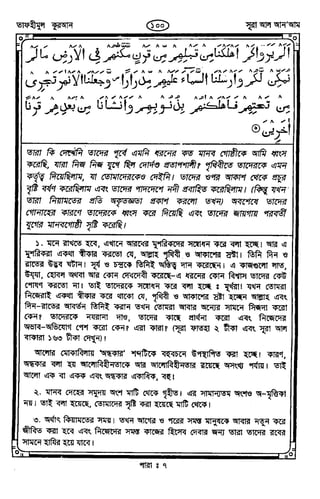 তাফহীমুল কুরআন
১০০
সূরা আল আন'আম
أَلَمْ يَرَوْا كَمْ أَهْلَكْنَا مِن قَبْلِهِم مِّن قَرْنٍ مَّكَّنَّهُمْ فِي الْأَرْضِ مَا لَمْ
نُمَكِّن لَّكُمْ وَأَرْسَلْنَا السَّمَاءَ عَلَيْهِم مِّدْرَارًا وَجَعَلْنَا الْأَنْهَارَ تَجْرِي
مِن تَحْتِهِمْ فَأَهْلَكْنَاهُم بِذُنُوبِهِمْ وَأَنشَأْنَا مِن بَعْدِهِمْ قَرْنًا
آخَرِينَ
তারা কি দেখেনি তাদের পূর্বে এমনি ধরনের কত মানব গোষ্ঠীকে আমি ধ্বংস
করেছি, যারা নিজ নিজ যুগে ছিল দোর্দণ্ড প্রতাপশালী? পৃথিবীতে তাদেরকে এমন
কর্তৃত্ব দিয়েছিলাম, যা তোমাদেরকেও দেইনি। তাদের ওপর আকাশ থেকে প্রচুর
বৃষ্টি বর্ষণ করেছিলাম এবং তাদের পাদদেশে নদী প্রবাহিত করেছিলাম। (কিন্তু যখন
তারা নিয়ামতের প্রতি অকৃতজ্ঞতা প্রকাশ করলো তখন) অবশেষে তাদের
গোনাহের কারণে তাদেরকে ধ্বংস করে দিয়েছি এবং তাদের জায়গায় পরবর্তী
যুগের মানবগোষ্ঠী সৃষ্টি করেছি।
১. মনে রাখতে হবে, এখানে আরবের মুশরিকদের সম্বোধন করে বলা হচ্ছে। আর এ
মুশরিকরা একথা স্বীকার করতো যে, আল্লাহ পৃথিবী ও আকাশের স্রষ্টা। তিনি দিন ও
রাতের উদ্ভব ঘটান। সূর্য ও চন্দ্রকে তিনিই অস্তিত্ব দান করেছেন। এ কাজগুলো লাত,
উয্যা, হোবল অথবা আর কোন দেবদেবী করেছে–এ ধরনের কোন বিশ্বাস তাদের কেউ
পোষণ করতো না। তাই তাদেরকে সম্বোধন করে বলা হচ্ছে ঃ মূর্খরা! যখন তোমরা
নিজেরাই একথা স্বীকার করে থাকো যে, পৃথিবী ও আকাশের স্রষ্টা হচ্ছেন আল্লাহ এবং
দিন–রাতের আবর্তন তিনিই করান তখন তোমরা আবার অন্যের সামনে সিজদা করো
কেন? তাদেরকে নযরানা দাও, তাদের কাছে প্রার্থনা করো এবং নিজেদের
অভাব–অভিযোগ পেশ করো কেন? এরা কারা? (সূরা ফাতেহা ২ টীকা এবং সূরা আল
বাকারাহ ১৬৩ টীকা দেখুন)।
আলোর মোকাবিলায় 'অন্ধকার' শব্দটিকে বহুবচনে উপস্থাপিত করা হচ্ছে। কারণ,
অন্ধকার বলা হয় আলোবিহীনতাকে আর আলোবিহীনতার রয়েছে অসংখ্য পর্যায়। তাই
আলো এক বা একক এবং অন্ধকার একাধিক, বহু।
২. মানব দেহের সমুদয় অংশ মাটি থেকে গৃহীত। এর সামান্যতম অংশও অ–মৃত্তিকা
নয়। তাই বলা হয়েছে, তোমাদের সৃষ্টি করা হয়েছে মাটি থেকে।
৩. অর্থাৎ কিয়ামতের সময়। তখন আগের ও পরের সমস্ত মানুষকে আবার নতুন করে
জীবিত করা হবে এবং নিজেদের সমস্ত কাজের হিসেব দেবার জন্য তারা তাদের রবের
সামনে হাযির হয়ে যাবে।
পারা ঃ ৭